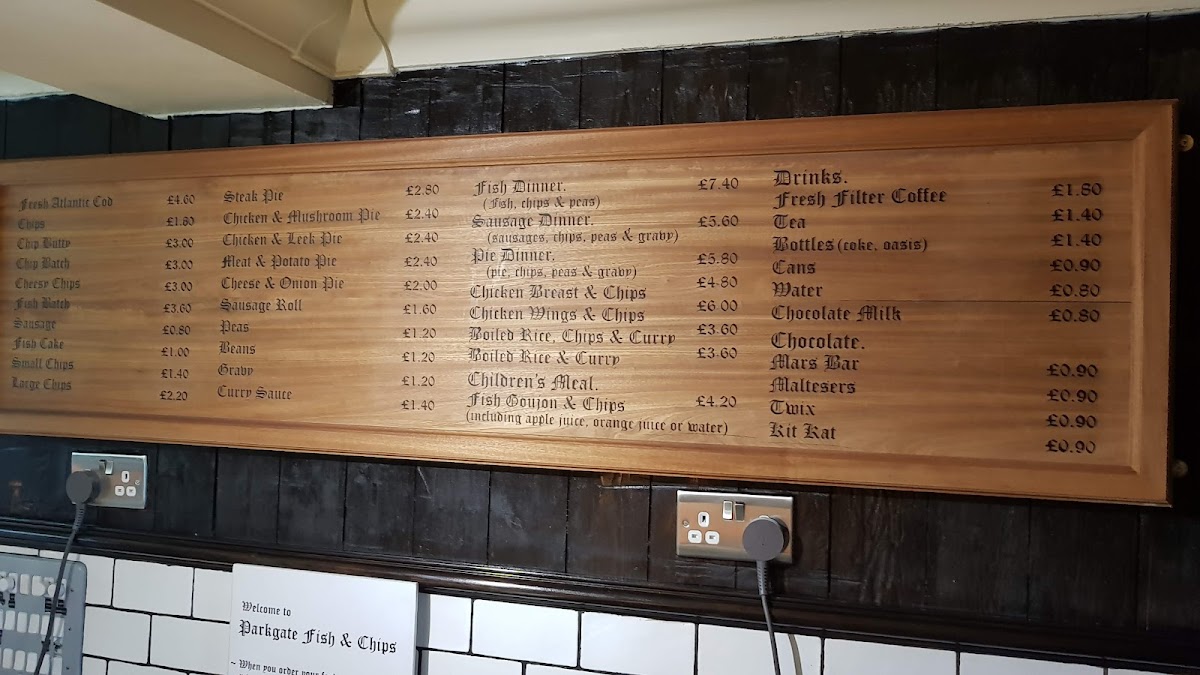 Fresh Atlantic Cod £4.60
Chips £1.80
Chip Butty £3.00
Chip Batch £3.00
Cheesy Chips £3.00
Fish Batch £3.60
Sausage £0.80
Fish Cake £1.00
Small Chips £1.40
Large Chips £2.20
Steak Pie £2.80
Chicken & Mushroom Pie £2.40
Chicken & Leek Pie £2.40
Meat & Potato Pie £2.40
Cheese & Onion Pie £2.00
Sausage Roll £1.60
Peas £1.20
Beans £1.20
Gravy £1.20
Curry Sauce £1.40
Fish Dinner. £7.40
(Fish, chips & peas)
Sausage Dinner. £5.60
(sausages, chips, peas & gravy)
Pie Dinner. £5.80
(pie, chips, peas & gravy)
Chicken Breast & Chips £4.80
Chicken Wings & Chips £6.00
Boiled Rice, Chips & Curry £3.60
Boiled Rice & Curry £3.60
Children's Meal.
Fish Goujon & Chips £4.20
(including apple juice, orange juice or water)
Drinks.
Fresh Filter Coffee £1.80
Tea £1.40
Bottles (coke, oasis) £1.40
Cans £0.90
Water £0.80
Chocolate Milk £0.80
Chocolate.
Mars Bar £0.90
Maltesers £0.90
Twix £0.90
Kit Kat £0.90
Welcome to
Parkgate Fish & Chips
~ When you order your